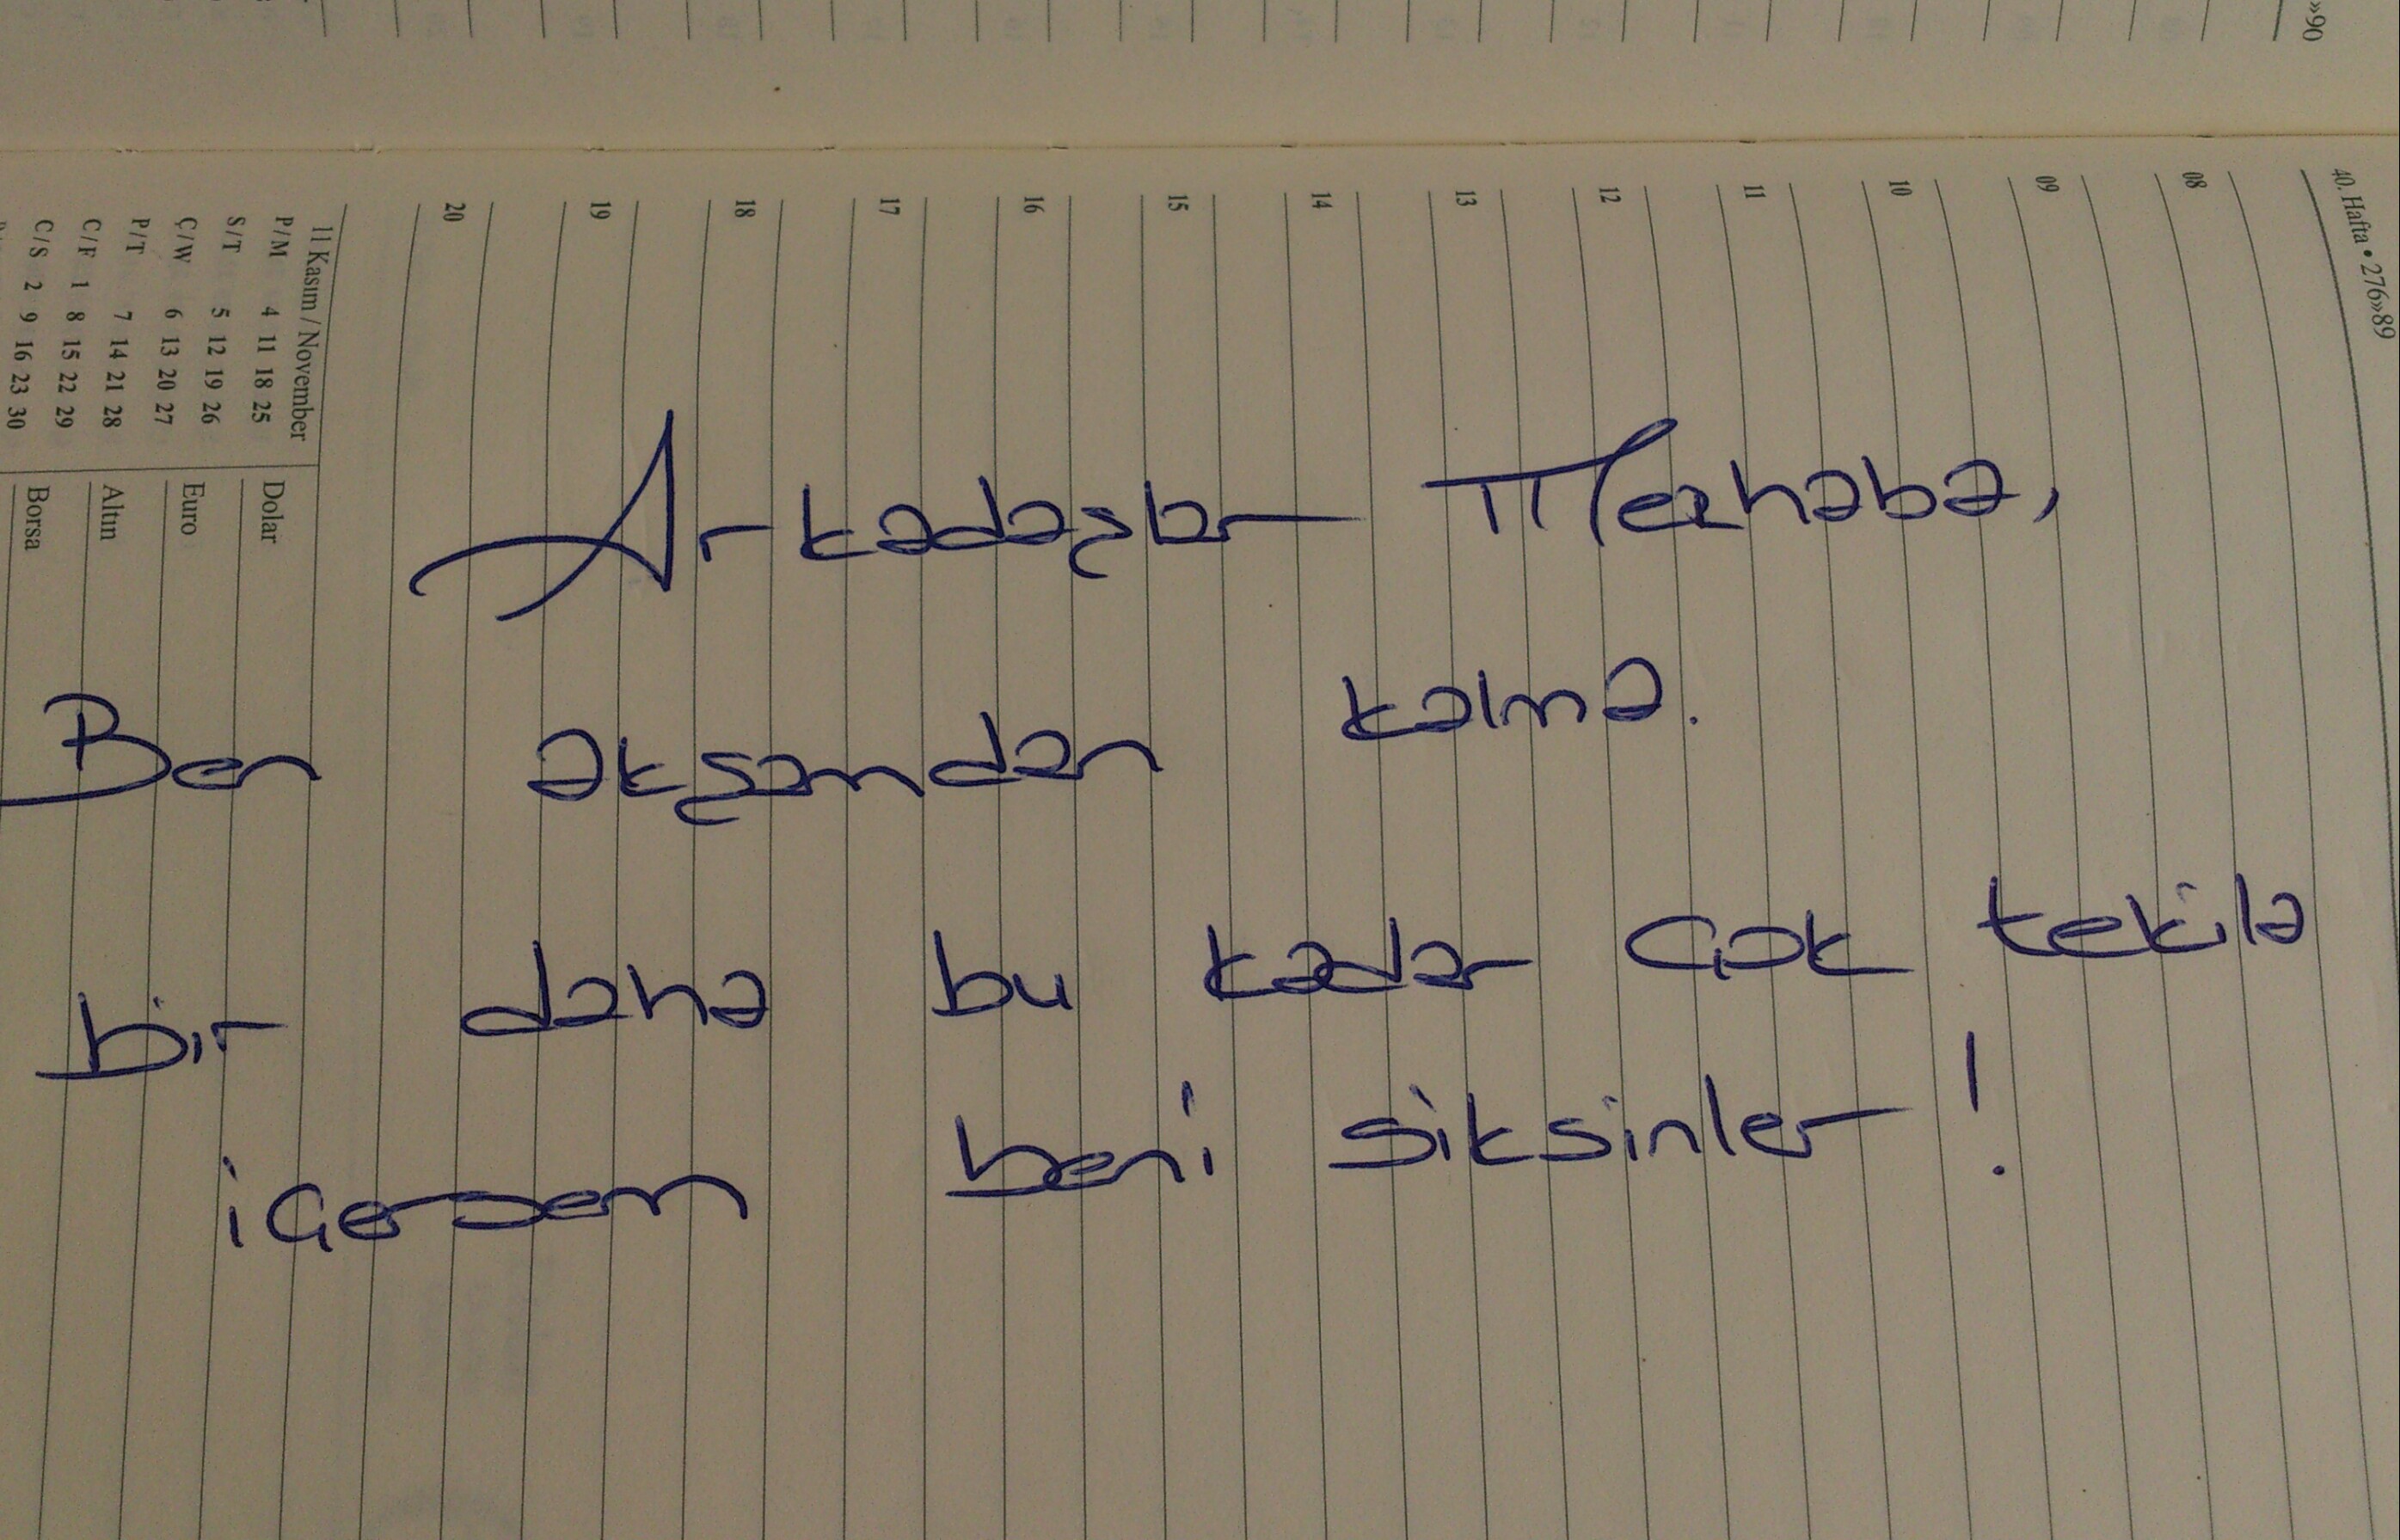 Arkadaşlar Merhaba,
Ben akşamdan kalma.
bir daha bu kadar çok tekila
içersem beni siksinler!
»90
40. Hafta • 276»89
08
09
10
11
12
13
14
15
16
17
18
19
20
11 Kasım / November
P/M 4 11 18 25
S/T 5 12 19 26
Ç/W 6 13 20 27
P/T 7 14 21 28
C/F 1 8 15 22 29
C/S 2 9 16 23 30
Dolar
Euro
Altın
Borsa